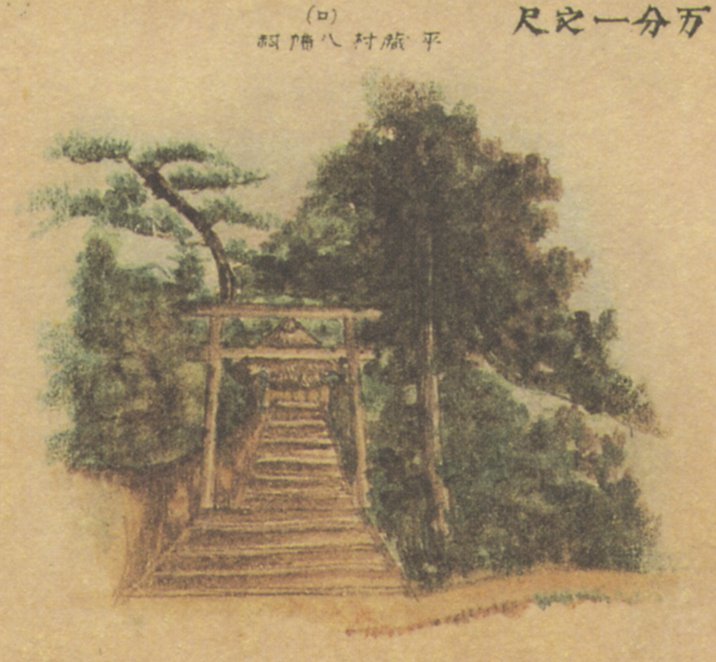 万分一之尺
(ロ)
平蔵村八幡